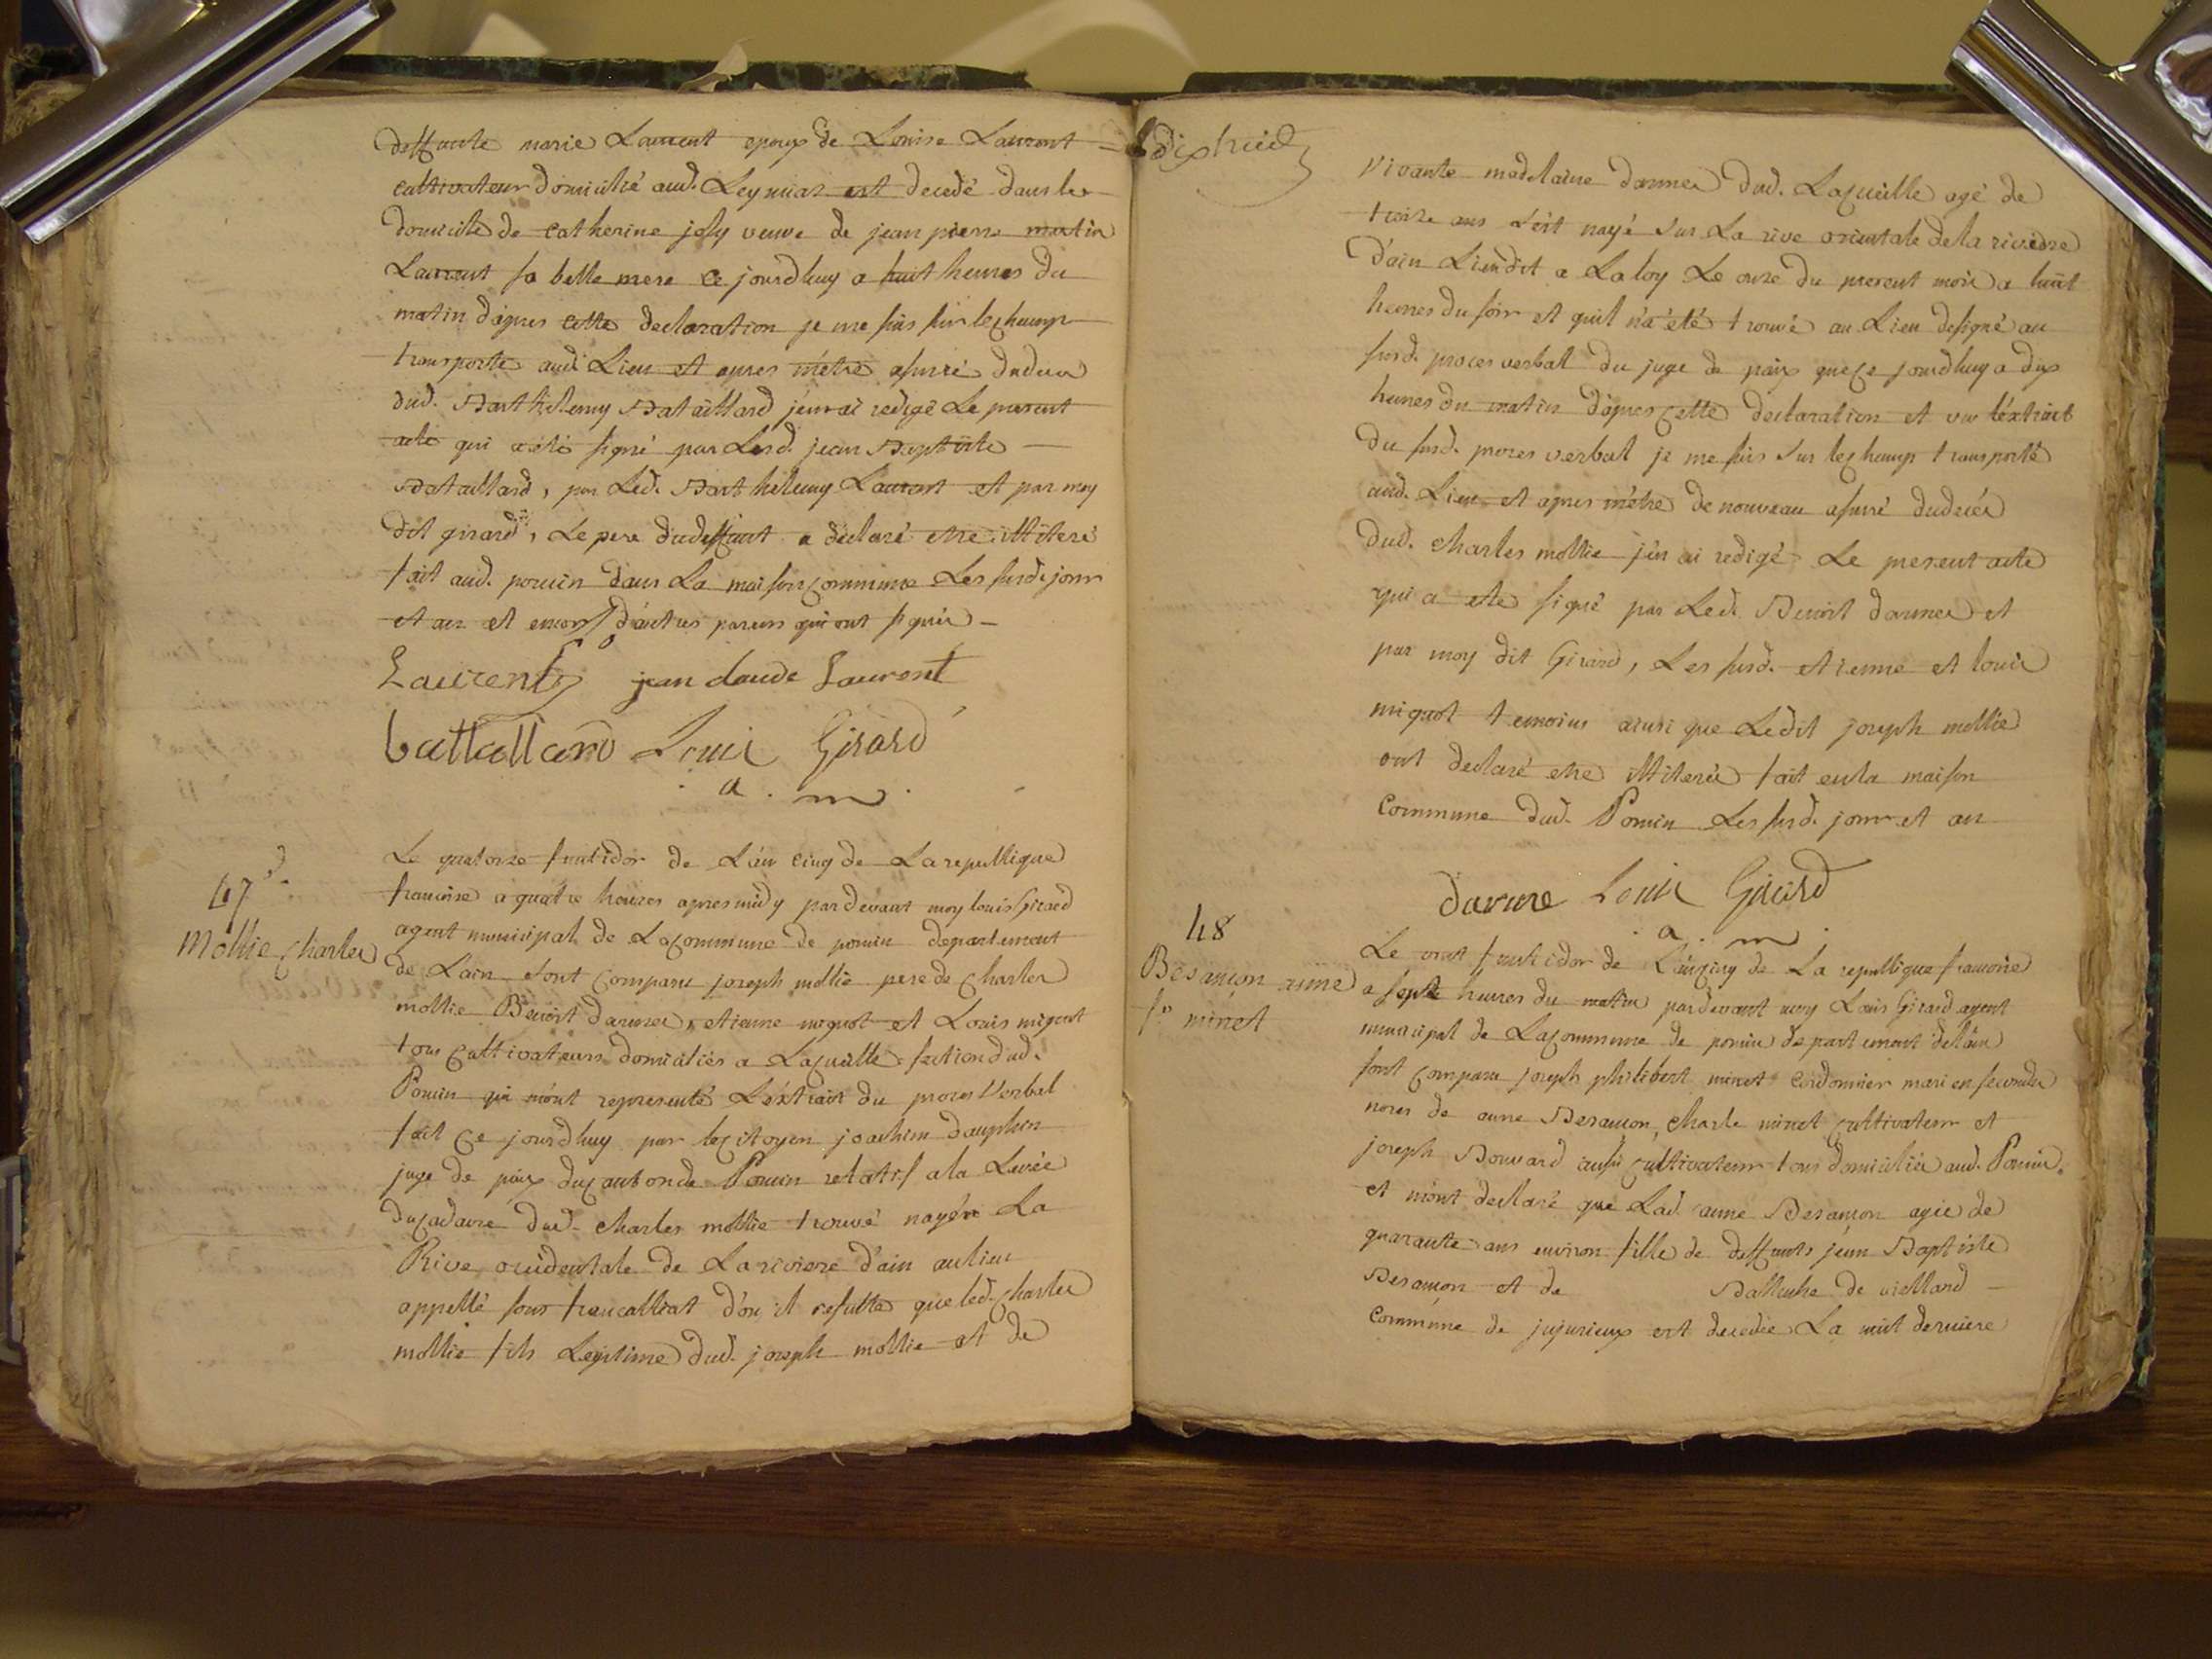 deffunte marie Laurent epoux de Louise Laurent
cultivateur domicilié aud. Leymiat est decedé dans le
domicile de catherine joly veuve de jean pierre matin
Laurent sa belle mere ce jourdhuy a huit heures du
matin d'apres cette declaration je me suis sur le champ
transporté aud. Lieu et apres m'être assuré du deces
dud. Barthelemy Bataillard j'en ai redigé Le present
acte qui a été signé par Lesd. jean Baptiste
Bataillard, par Led. Barthelemy Laurent et par moy
dit girard, Le pere du deffunt a déclaré etre illiteré
fait aud. poncin dans La maison commune Les susd. jour
et an et encore d'autres parens qui ont signés
Laurent jean claude Laurent
battallard Louis Girard
a . m
47
Mollie Charles
Le quatorze fructidor de L'an cinq de La republique
francoise a quatre heures apres midy pardevant moy louis Girard
agent municipal de La commune de poncin departement
de Lain sont comparu joseph mollie pere de charles
mollie Benoit darmes, etienne miguot et Louis miguot
tous cultivateurs domiciliés a La cueille section dud.
Poncin qui m'ont representé L'extrait du proces verbal
fait ce jourdhuy par le citoyen joachim dauphin
juge de paix du canton de Poncin relatif a la Levée
du cadavre dud. charles mollie trouvé nayé a La
Rive occidentale de La riviere d'ain au lieu
appellé sous d'ou il resulte que led. charles
mollie fils Legitime dud. joseph mollie et de
dix huit
vivante madelaine darmes dud. La cueille agé de
treize ans s'est nayé sur La rive orientale de la riviere
d'ain Lieudit a La loy Le onze du present mois a huit
heures du soir et qu'il n'a été trouvé au Lieu designé au
susd. proces verbal du juge de paix que ce jourdhuy a dix
heures du matin d'apres cette declaration et vu l'extrait
du susd. proces verbal je me suis sur le champ transporté
aud. Lieu et apres m'être de nouveau assuré du decés
dud. charles mollie j'en ai redigé Le present acte
qui a ete signé par Led. Benoit darmes et
par moy dit Girard, Les susd. etienne et louis
miguot temoins ainsi que Ledit joseph mollie
ont declaré etre illiterés fait en la maison
commune dud. Poncin Les susd. jour et an
darme Louis Girard
a . m .
48
Besançon anne
fe minet
Le vint fructidor de L'an cinq de La republique francoise
a sept heures du matin pardevant moy Louis Girard agent
municipal de La commune de poncin departement de lain
sont comparu joseph philibert minet cordonnier mari en secondes
noces de anne Besançon, charle minet cultivateur et
joseph Bouvard aussi cultivateur tous domiciliés aud. Poncin.
et m'ont declaré que Lad. anne Besançon agée de
quarante ans environ fille de deffunts jean Baptiste
Besançon et de de viellard
commune de jujurieux est decedée La nuit derniere